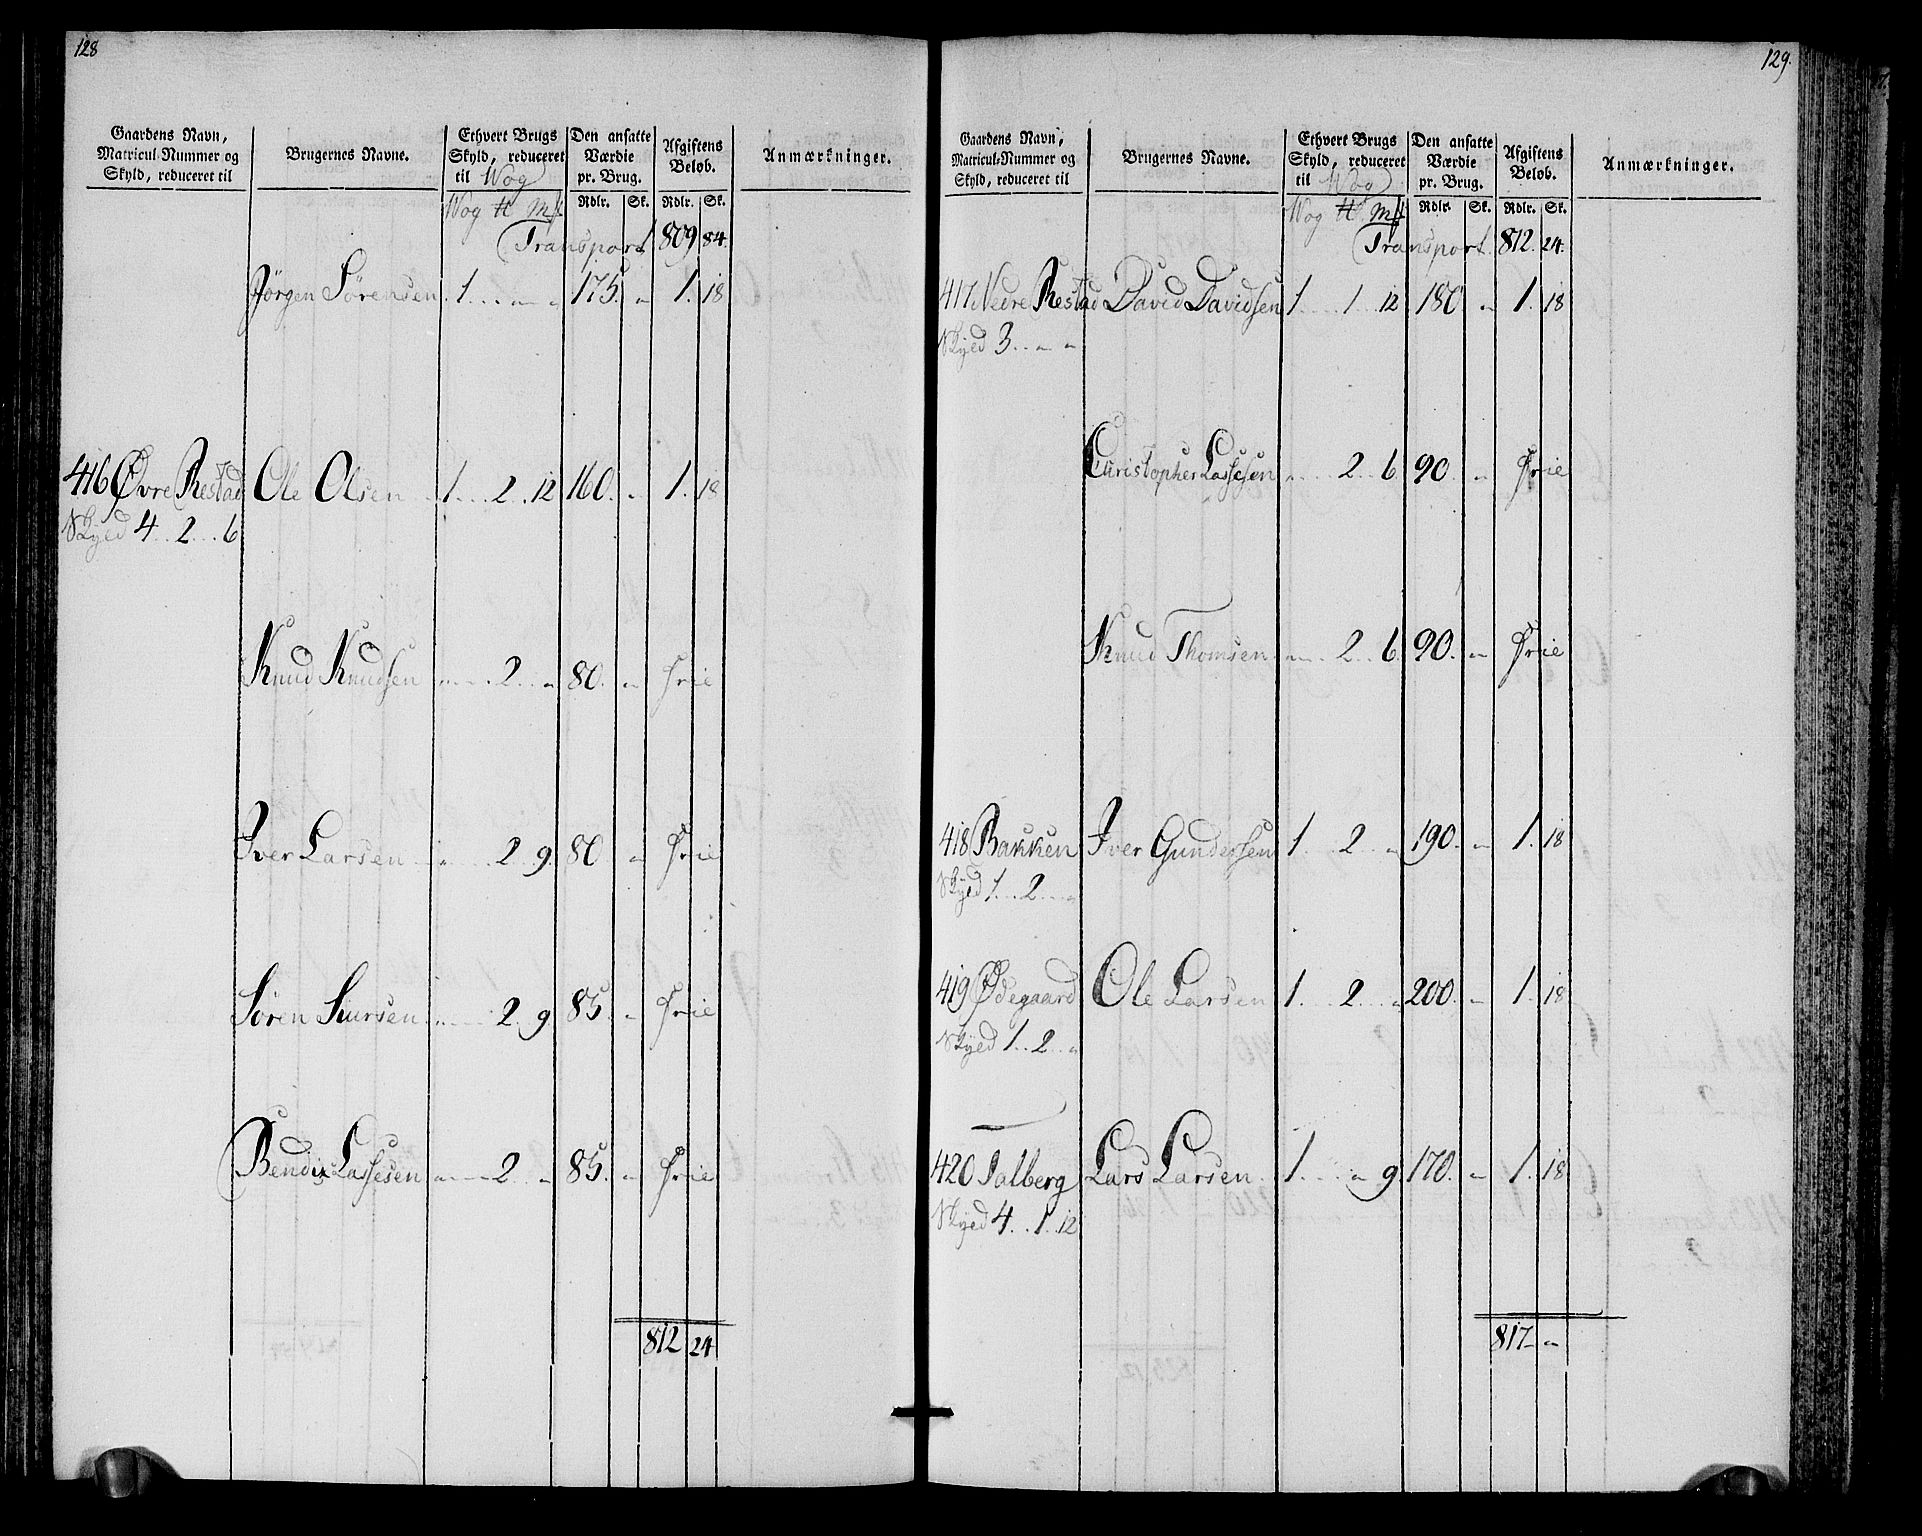 128
Gaardens Navn, Matricul-Nummer og Skyld, reduceret til
Brugernes Navne.
Ethvert Brugs Skyld, reduceret til Wog
Den ansatte Værdie pr. Brug.
Afgiftens Beløb.
Anmærkninger.
Wog ℔ Mk Rdlr. Sk. Rdlr. Sk.
Transport 809 84.
Jörgen Sörensen 1 . . . „ „ 175. „ 1. 18
416 Øvre Restad Ole Olsen 1 . . . 2. 12 160. „ 1. 18
Skyld 4 . . 2 . . . 6
Knud Knudsen „ . . . 2 . . „ 80. „ Frie
Iver Larsen „ . . . 2. 9. 80 „ Frie
Sören Siursen „ . . . 2. 9 85. „ Frie
Bendix Lassesen „ . . . 2 . . „ 85. „ Frie
812 24
129.
Gaardens Navn, Matricul-Nummer og Skyld, reduceret til
Brugernes Navne.
Ethvert Brugs Skyld, reduceret til Wog
Den ansatte Værdie pr. Brug.
Afgiftens Beløb.
Anmærkninger.
Wog ℔ Mk Rdlr. Sk. Rdlr. Sk.
Transport 812. 24.
417 Nedre Restad David Davidsen 1 . . . 1 . . 12 180 „ 1. 18
Skyld 3 . . „ „
Christopher Lassesen „ . . . 2 . . 6 90. „ Frie
Knud Thomsen „ . . . 2 . . 6. 90. „ Frie
418 Bakken Iver Gundersen 1 . . . 2 . . „ 190. „ 1. 18
Skyld 1 . . . 2 . . . „
419 Ødegaard Ole Larsen 1 . . . 2 . . . „ 200. „ 1. 18
Skyld 1 . . 2 . . . „
420 Salberg Lars Larsen 1 . . . „ 9 170. „ 1. 18
Skyld 4 . . 1 . . 12
817 „